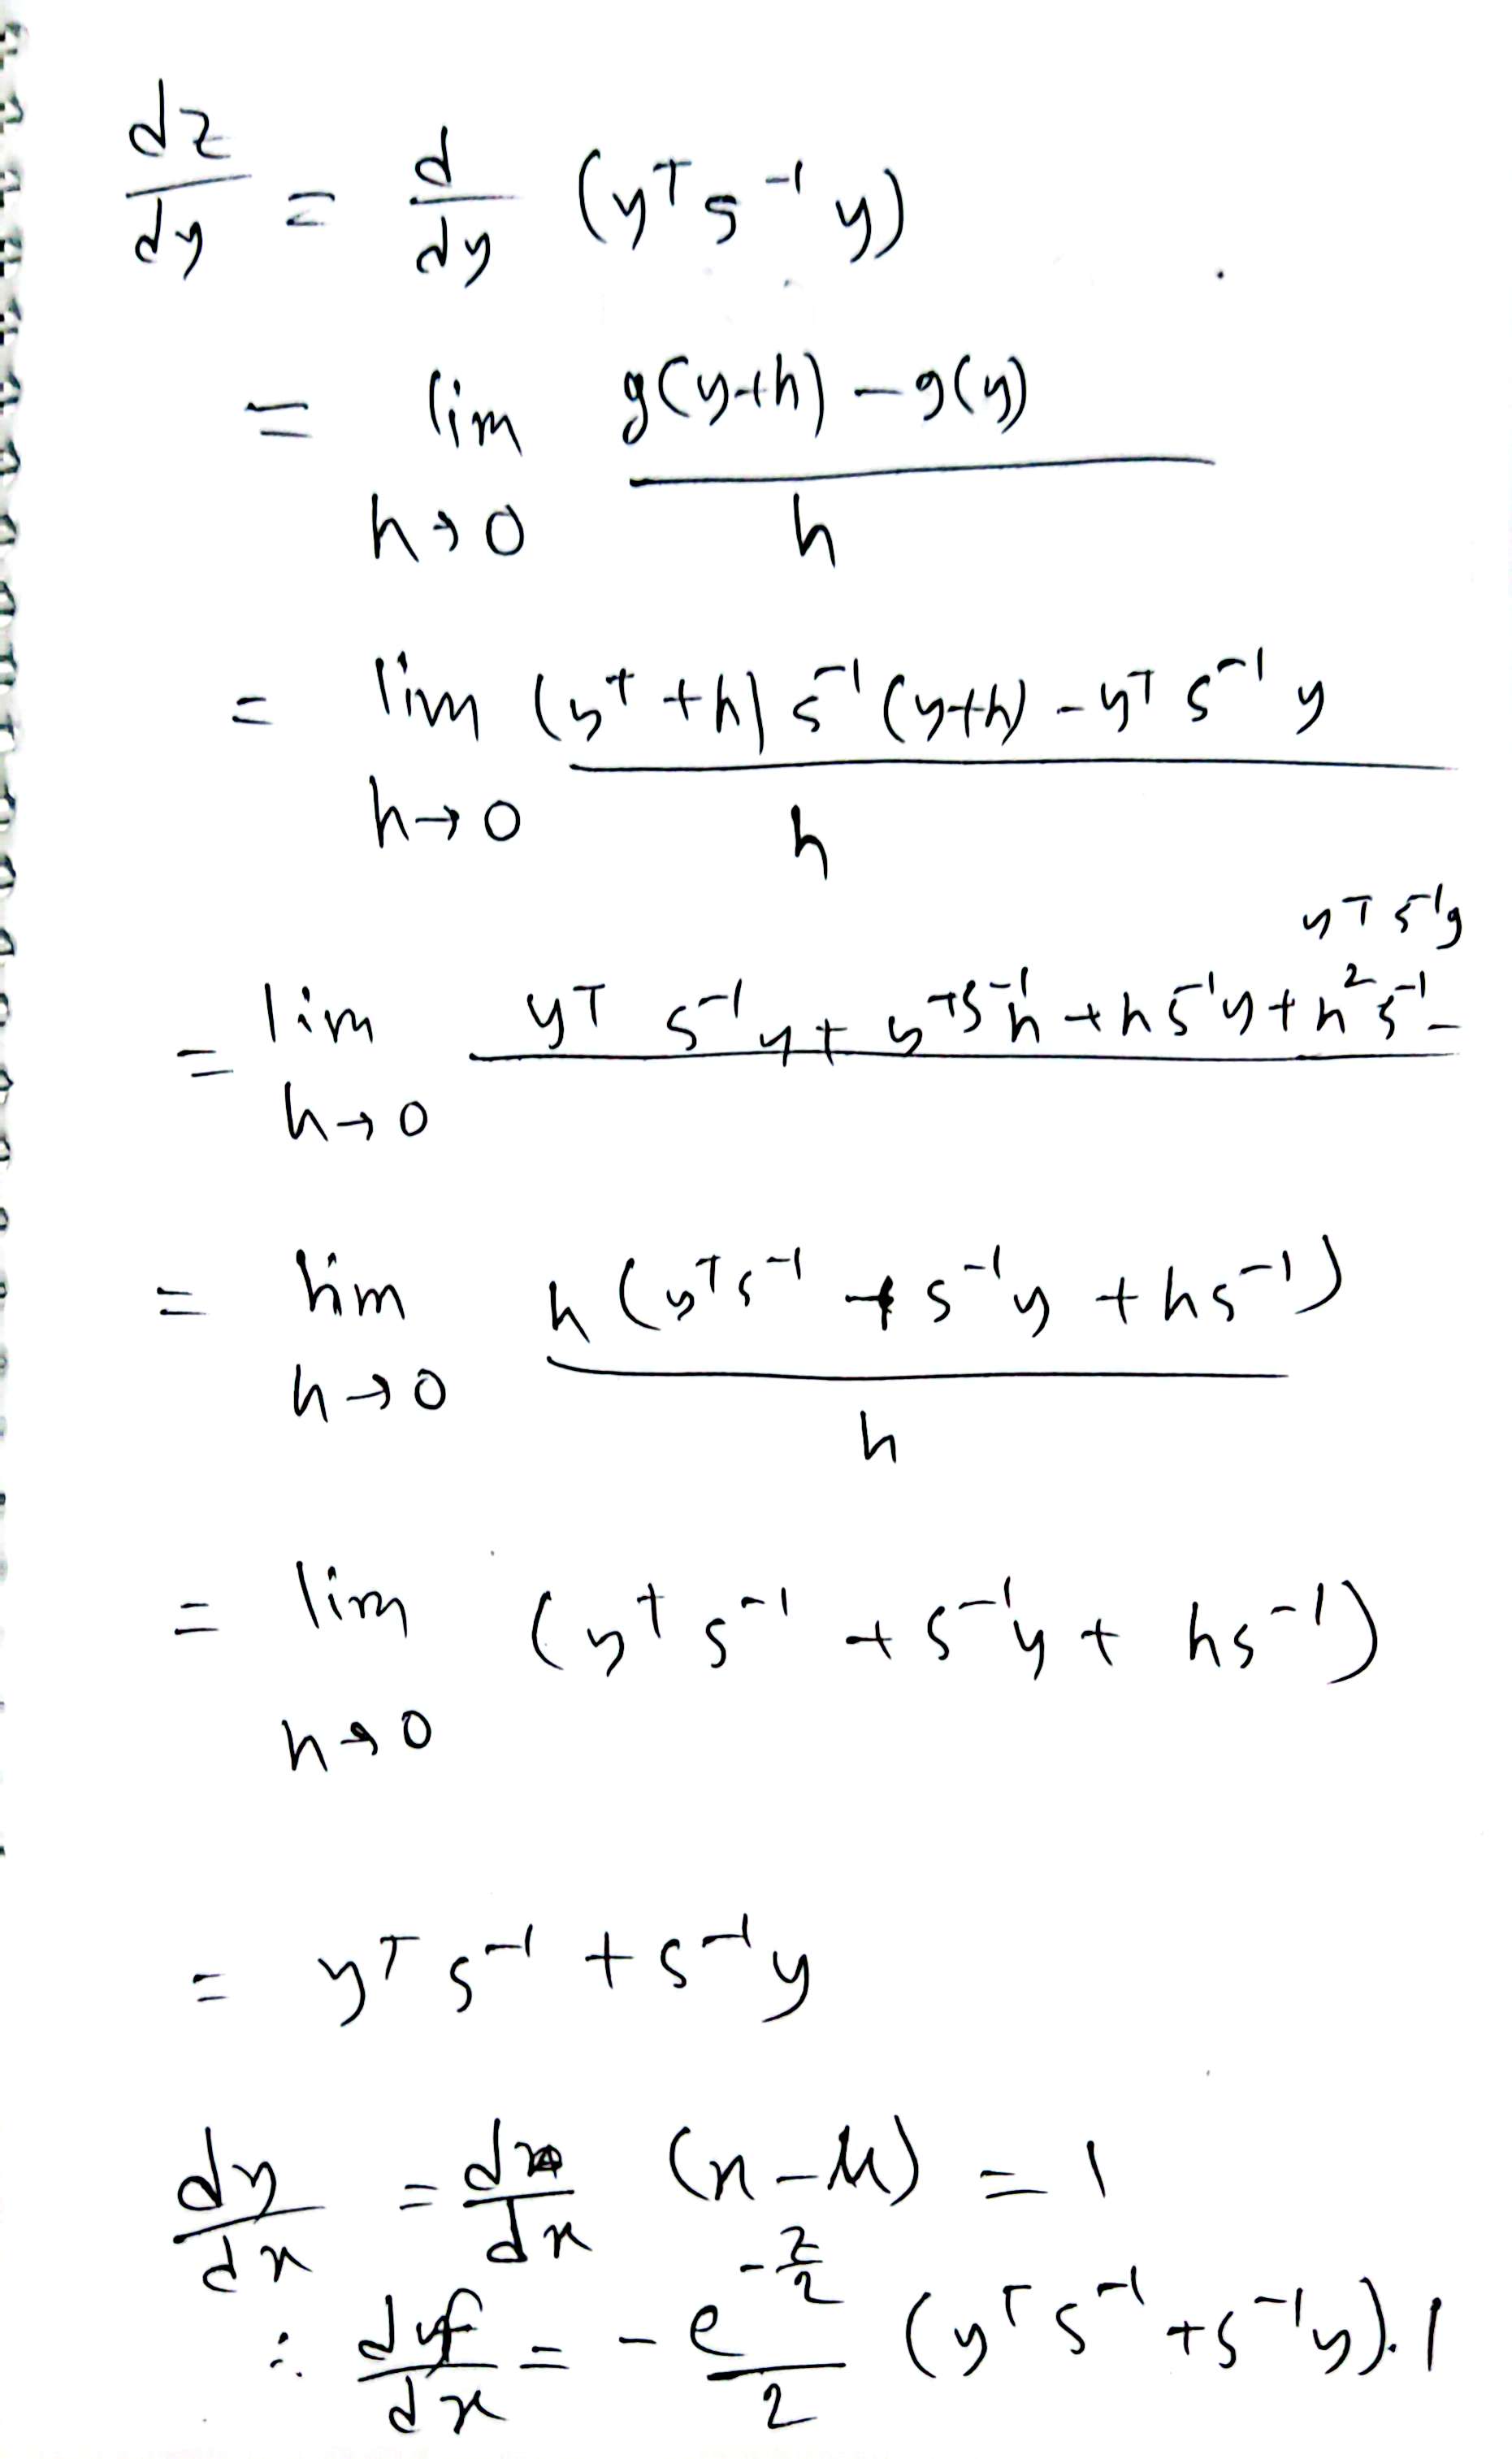 dz/dy = d/dy (yᵀ s⁻¹ y)
= lim h→0 g(y+h) - g(y) / h
= lim h→0 (yᵀ + h) s⁻¹ (y+h) - yᵀ s⁻¹ y / h
yᵀ s⁻¹ y
= lim h→0 yᵀ s⁻¹ y + yᵀ s⁻¹ h + h s⁻¹ y + h² s⁻¹ -
= lim h→0 h (yᵀ s⁻¹ + s⁻¹ y + h s⁻¹) / h
= lim h→0 (yᵀ s⁻¹ + s⁻¹ y + h s⁻¹)
= yᵀ s⁻¹ + s⁻¹ y
dy/dx = d/dx (x - μ) = 1
∴ df/dx = - e^(-z/2) / 2 (yᵀ s⁻¹ + s⁻¹ y). 1